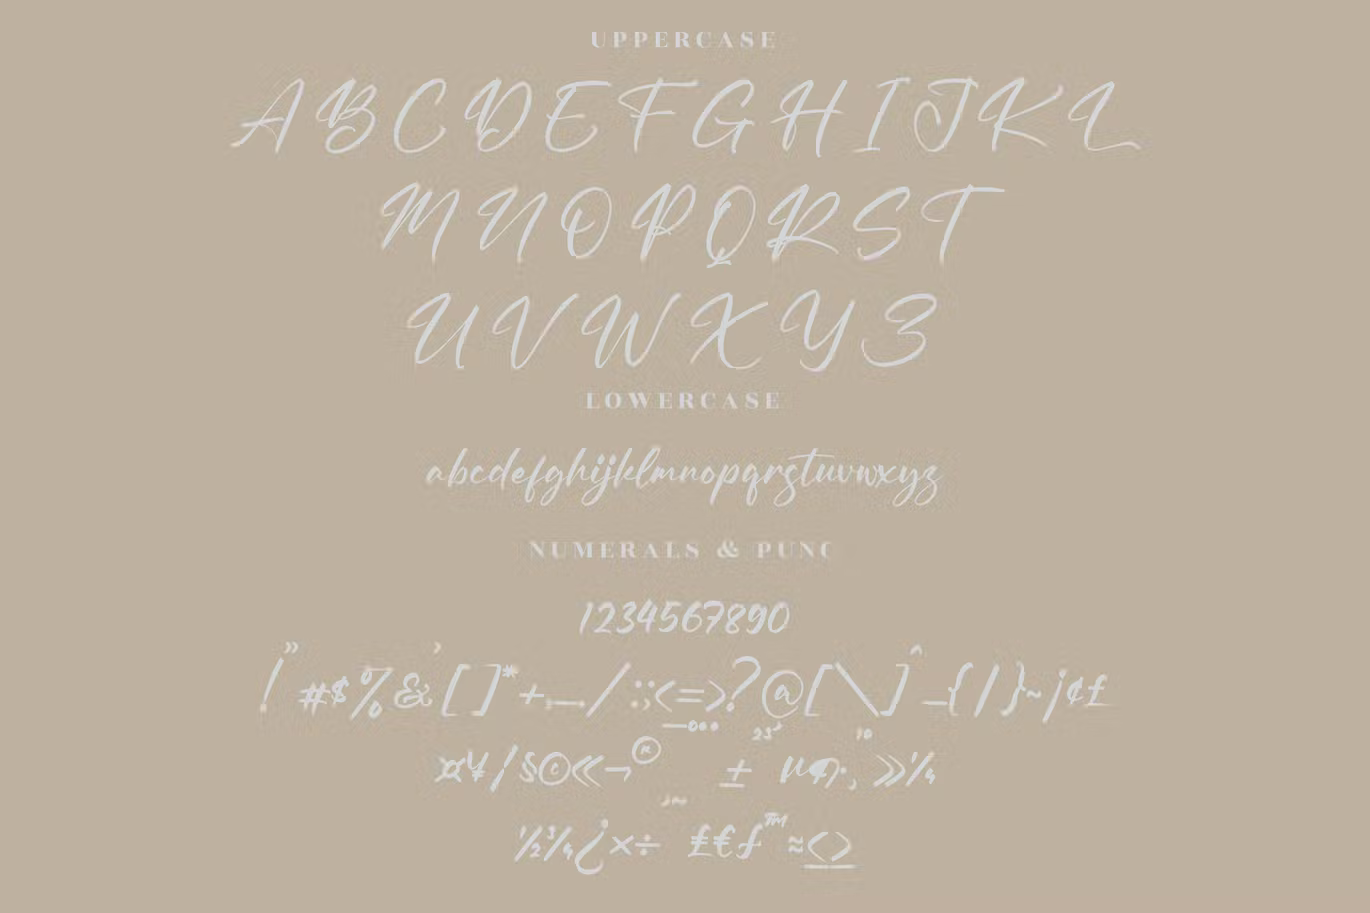 UPPERCASE
ABCDEFGHIJKL
MNOPQRST
UVWXYZ
LOWERCASE
abcdefghijklmnopqrstuvwxyz
NUMERALS & PUNC
1234567890
!"#$%&'[]*+,-./:;<=>?@[\]^_{|}~¡¢£
¤¥¦§©«¬® ± µ¶·¸»¼
½¾¿×÷ ₤€ƒ™≈≤≥